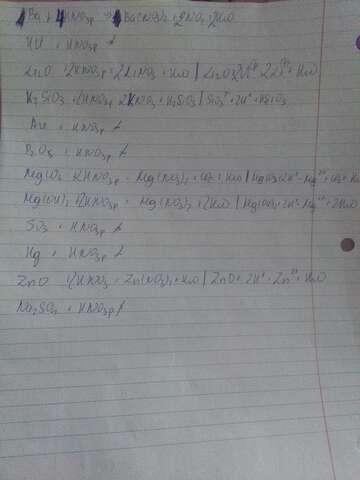 Ba + 4HNO3p → Ba(NO3)2 + 2NO2 + 2H2O
HCl + HNO3p ≠
+ 2HNO3p = 2LiNO3 + H2O |
K2SiO3 + 2HNO3p = 2KNO3 + H2SiO3 | SiO3²⁻ + 2H⁺ = H2SiO3
+ HNO3p ≠
P2O5 + HNO3p ≠
MgCO3 + 2HNO3p = Mg(NO3)2 + CO2 + H2O | MgCO3 + 2H⁺ = Mg²⁺ + CO2 + H2O
Mg(OH)2 + 2HNO3p = Mg(NO3)2 + 2H2O | Mg(OH)2 + 2H⁺ = Mg²⁺ + 2H2O
+ HNO3p ≠
Hg + HNO3p ≠
ZnO + 2HNO3 = Zn(NO3)2 + H2O | ZnO + 2H⁺ = Zn²⁺ + H2O
Na2SO4 + HNO3p ≠